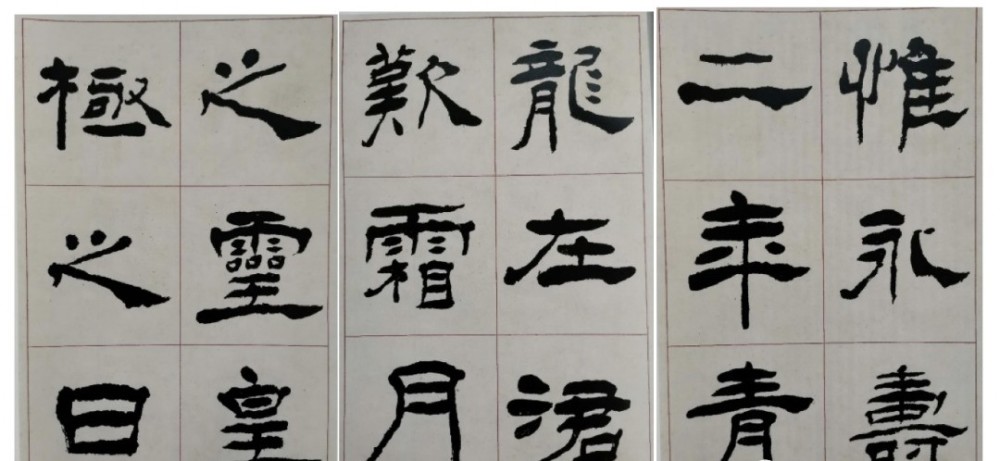 惟永壽
二年青
龍在涒
歎霜月
之靈皇
極之日